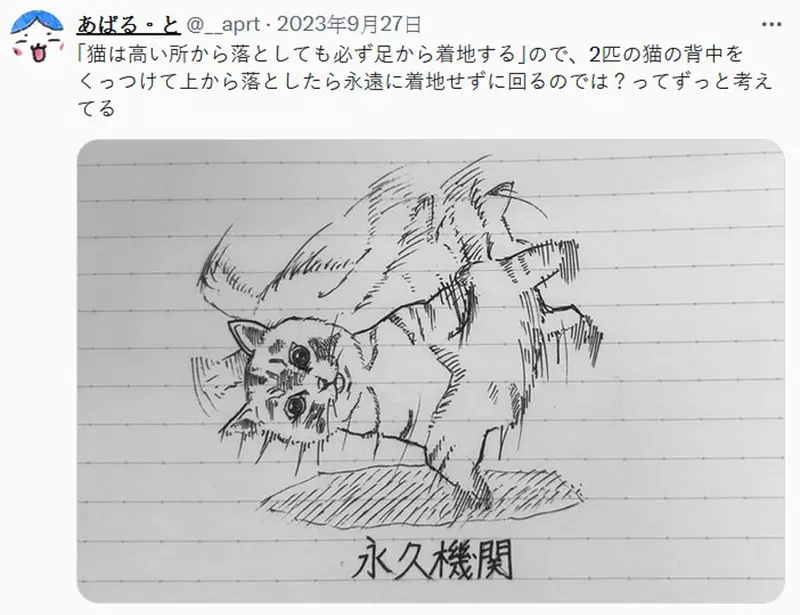 あばる。と @__aprt · 2023年9月27日
「猫は高い所から落としても必ず足から着地する」ので、2匹の猫の背中を
くっつけて上から落としたら永遠に着地せずに回るのでは？ってずっと考え
てる
永久機関